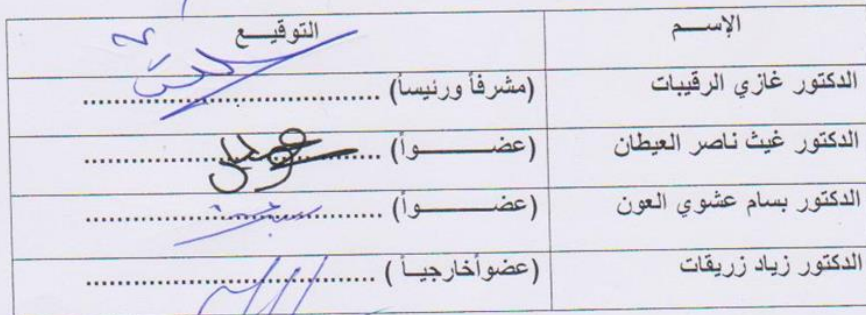 الإســـم التوقيـــع
الدكتور غازي الرقيبات (مشرفاً ورئيساً) ....................................
الدكتور غيث ناصر العيطان (عضـــــــــواً) ....................................
الدكتور بسام عشوي العون (عضـــــــــواً) ....................................
الدكتور زياد زريقات (عضواًخارجيـاً ) ....................................